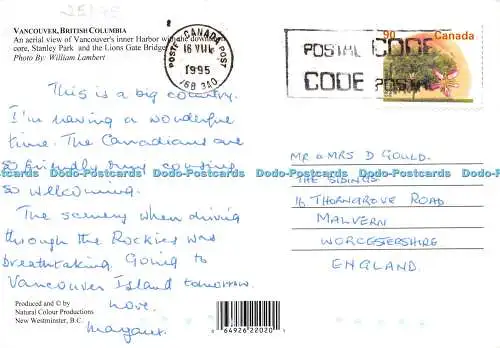 VANCOUVER, BRITISH COLUMBIA
An aerial view of Vancouver's inner Harbor with the downtown
core, Stanley Park and the Lions Gate Bridge
Photo By: William Lambert
This is a big country.
I'm having a wonderful
time. The Canadians are
so friendly
so welcoming.
The scenery when driving
through the Rockies was
breathtaking. Going to
Vancouver Island tomorrow.
Love,
Produced and © by
Natural Colour Productions
New Westminster, B.C.
64926 22020
POSTE CANADA POST
16 VIII
1995
J6B 3A0
POSTAL CODE
CODE POSTAL
90 Canada
MR & MRS D GOULD.
THE SIDINGS
16 THORNGROVE ROAD
MALVERN
WORCESTERSHIRE
ENGLAND.
Dodo-Postcards Dodo-Postcards Dodo-Postcards Dodo-Postcards